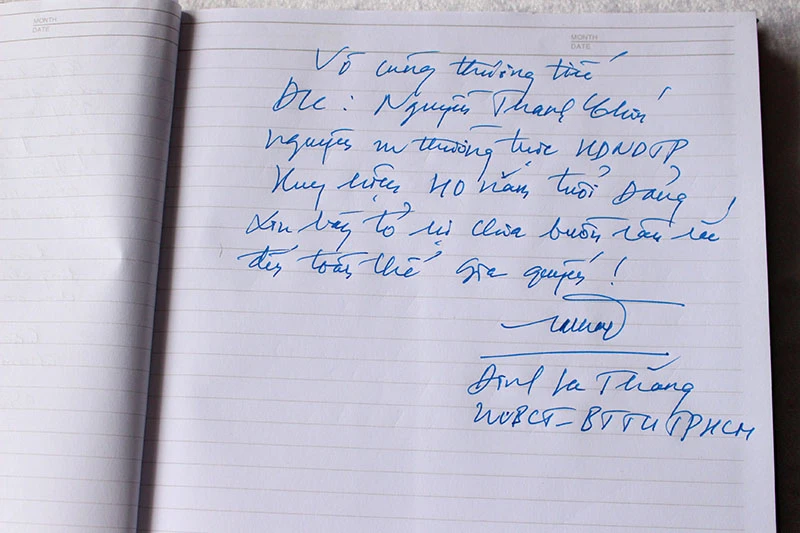 MONTH
DATE
MONTH
DATE
Vô cùng thương tiếc
Đ/c : Nguyễn Thanh Chín
nguyên UV thường trực HĐNDTP
Huy hiệu 40 năm tuổi Đảng !
Xin bày tỏ sự chia buồn sâu sắc
đến toàn thể gia quyến !
Đinh La Thăng
UVBCT - BTTU TPHCM